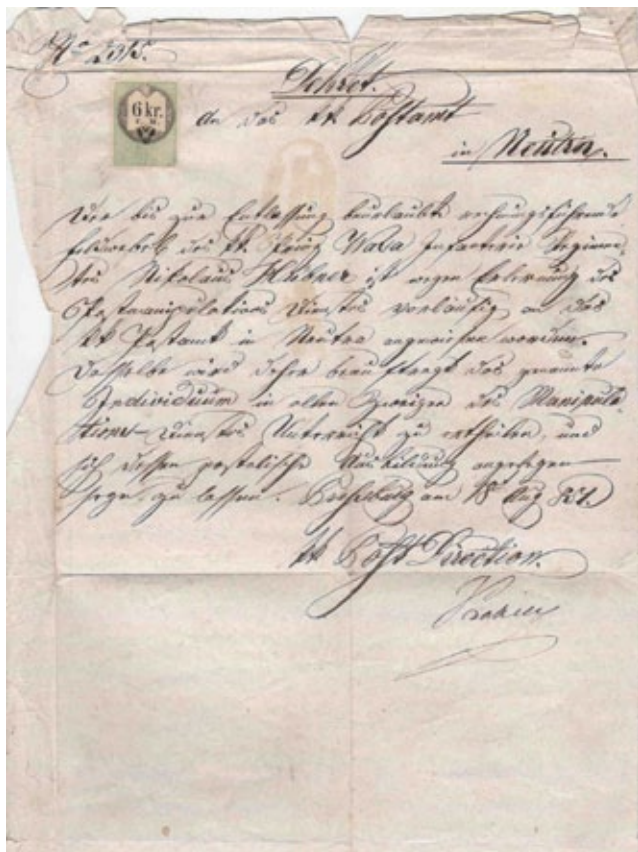 No 2315.
Dekret.
6 kr.
C. M.
An das kk Postamt
in Neutra.
Der bis zur Entlassung beurlaubte rechnungsführende
Feldwebel des kk König Wasa Infanterie Regimen-
tes Nikolaus Hübner ist wegen Erlernung des
Postmanipulations Dienstes vorläufig an das
kk Postamt in Neutra angewiesen worden.
Dasselbe wird daher beauftragt das genannte
Individuum in allen Zweigen des Manipula-
tions-Dienstes Unterricht zu ertheilen, und
sich dessen postalische Ausbildung angelegen
seyn zu lassen. Pressburg am 18 Aug
kk Post Direction.